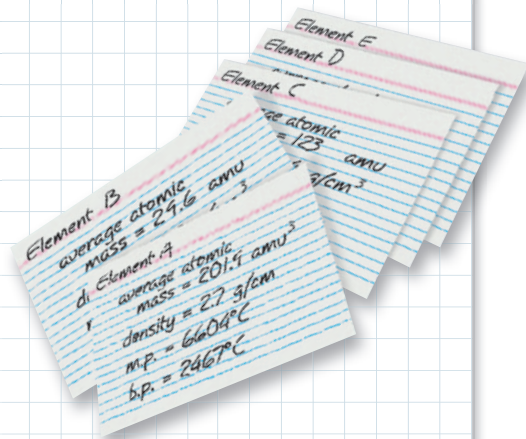 Element E
Element D
Element C
atomic
= 123 amu
g/cm³
Element B
average atomic
mass = 29.6 amu
Element A
average atomic
mass = 201.9 amu³
density = 2.7 g/cm
m.p. = 6604°C
b.p. = 2467°C